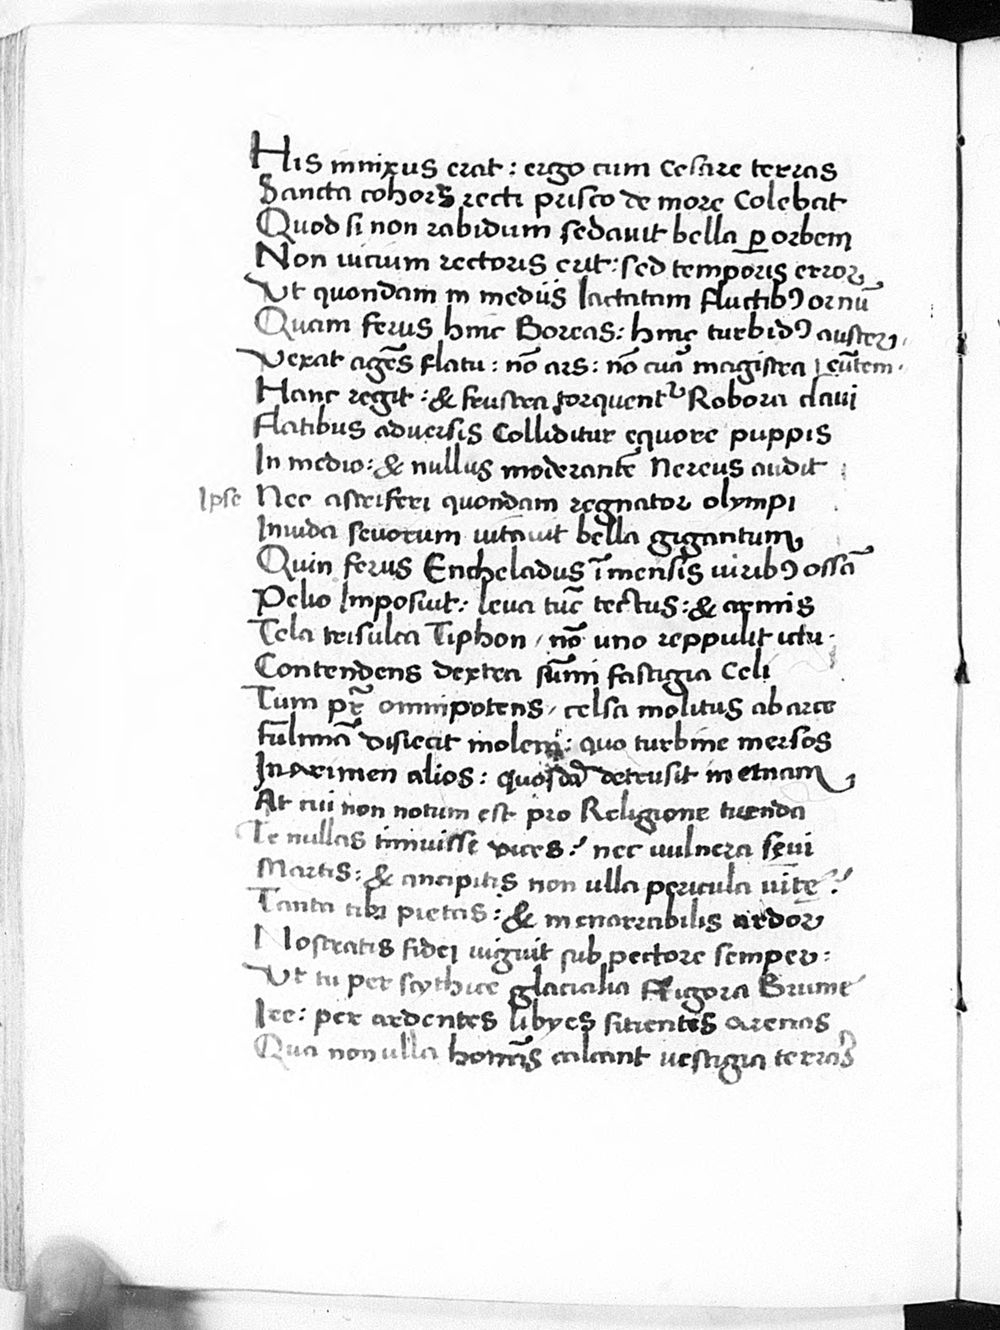 His innixus erat: ergo cum Cesare terras
Sancta cohors recti prisco de more Colebat
Quod si non rabidum sedauit bella ꝑ orbem
Non uicium rectoris erit: sed temporis error,
Vt quondam in mediis Iactatam fluctibꝰ ornū
Quam ferus hinc Boreas: hinc turbidꝰ auster,
Vexat agēs flatu: nō ars: nō cura magistra
Hanc regit: & frustra torquentᷣ Robora claui
Flatibus aduersis Colliditur equore puppis
In medio: & nullus moderantē Nereus audit
Ipse Nec astriferi quondam regnator olympi
Inuida seuorum uitauit bella gigantum,
Quin ferus Encheladus īmensis uiribꝰ ossā
Pelio Imposuit: leua tūc tectus: & armis
Tela trisulca Tiphon, nō uno reppulit ictu.
Contendens dextra sūmi fastigia Celi
Tum pr̄ omnipotens, celsa molitus ab arce
fulminā disiecit molem: quo turbine mersos
Inarimen alios: quosdā detrusit in etnam,
At cui non notum est pro Religione tuenda
Te nullas timuisse uices: nec uulnera seui
Martis: & ancipitis non ulla pericula uitę:
Tanta tibi pietas: & inenarrabilis ardor
Nostratis fidei uiguit sub pectore semper:
Vt tu per scythice glacialia Rigora Brume
Ire: per ardentes libyes sitientes arenas
Qua non ulla homīs calcant uestigia terras